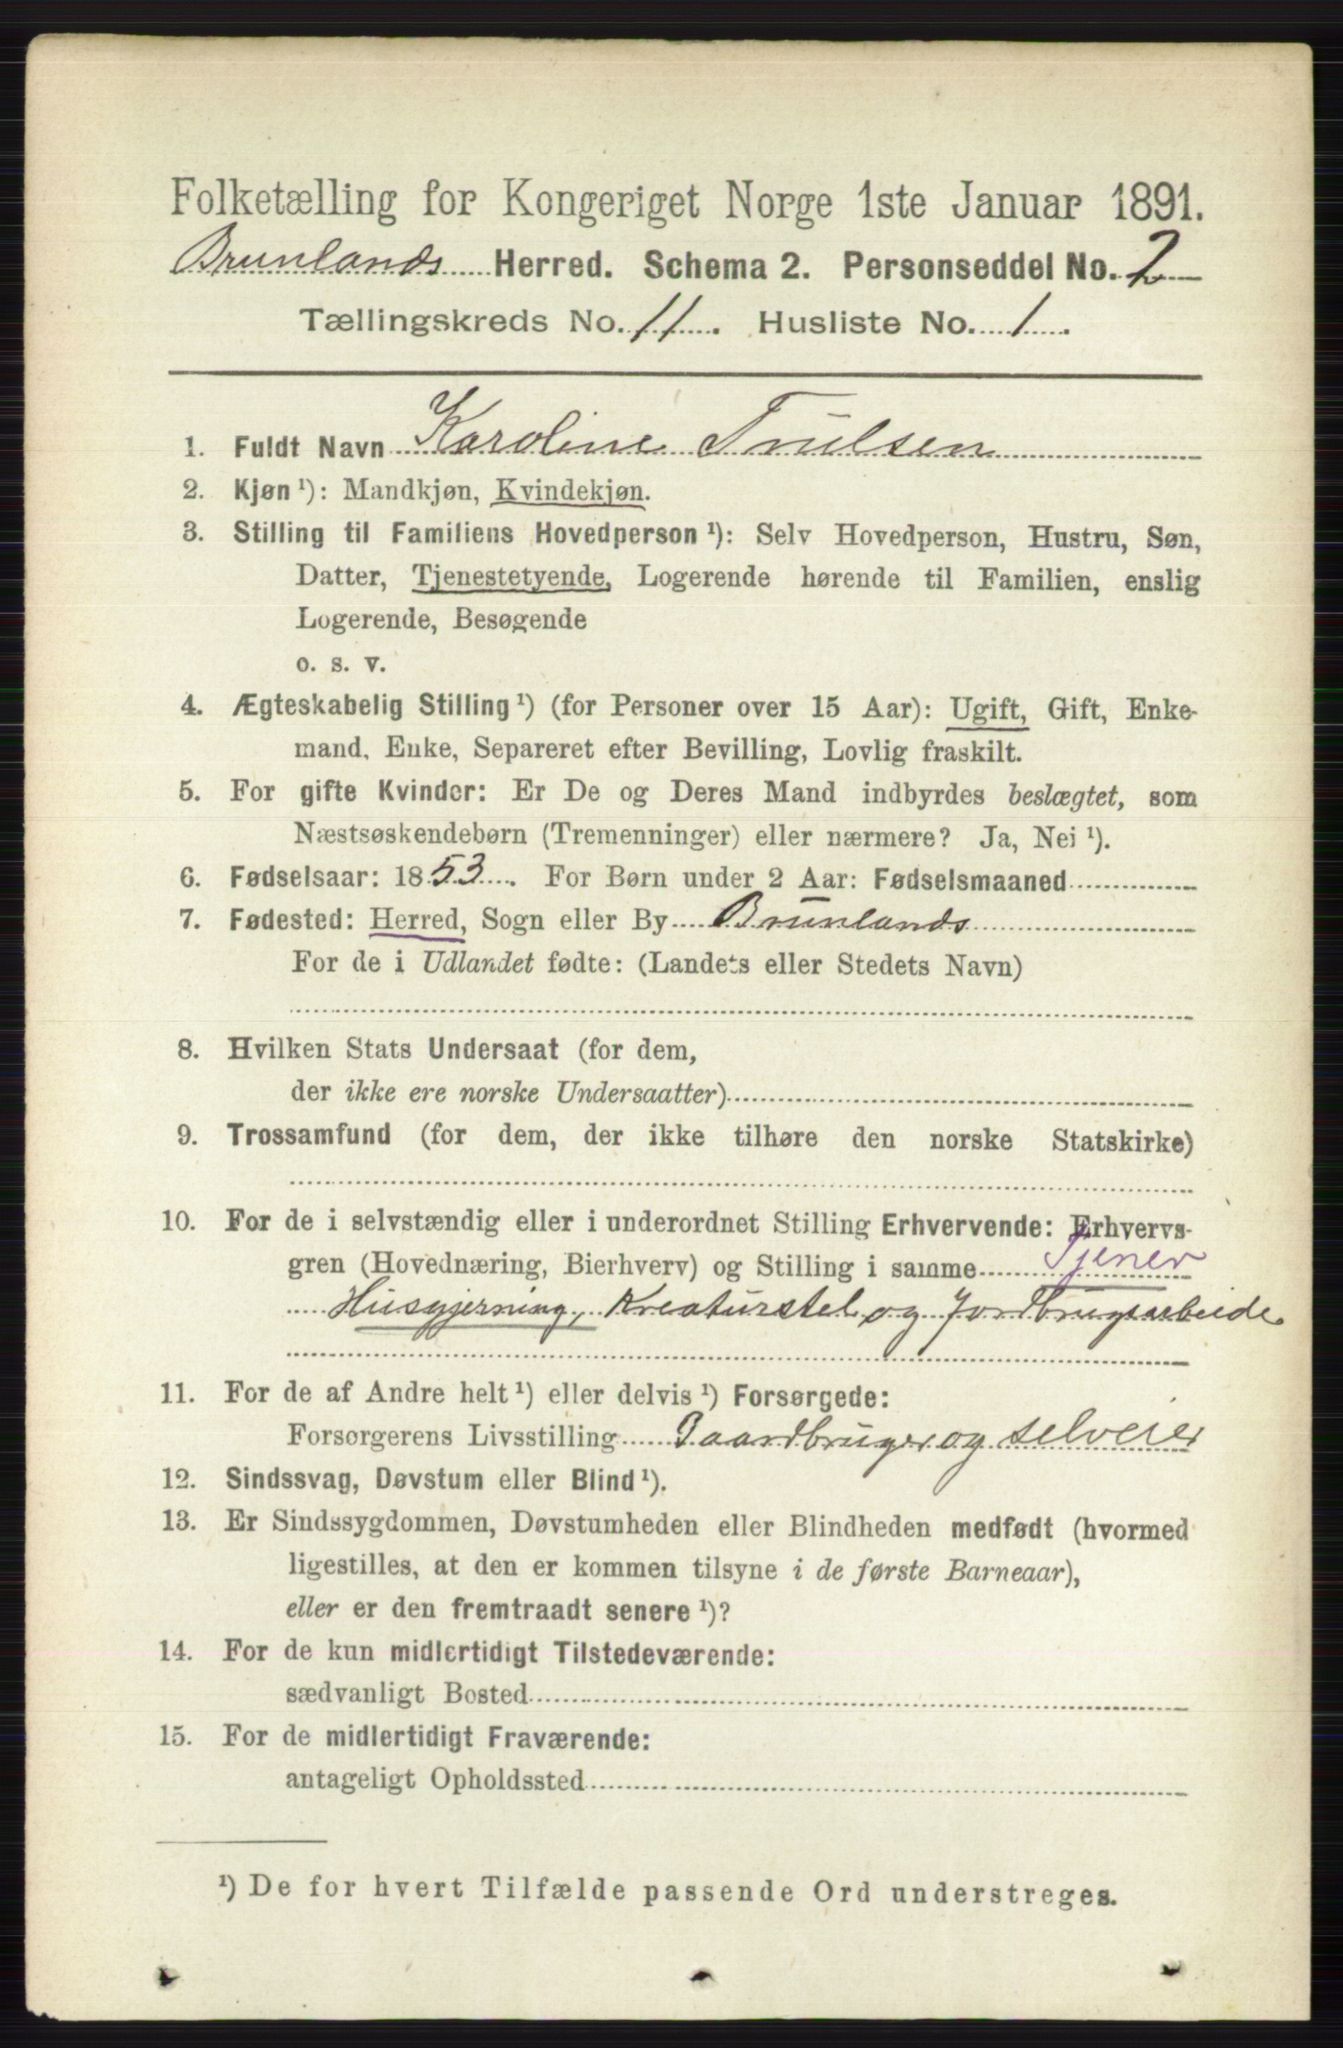 Folketælling for Kongeriget Norge 1ste Januar 1891.
Brunlands Herred. Schema 2. Personseddel No. 2
Tællingskreds No. 11. Husliste No. 1.
1. Fuldt Navn Karoline Trulsen
2. Kjøn ¹): Mandkjøn, Kvindekjøn.
3. Stilling til Familiens Hovedperson ¹): Selv Hovedperson, Hustru, Søn,
Datter, Tjenestetyende, Logerende hørende til Familien, enslig
Logerende, Besøgende
o. s. v.
4. Ægteskabelig Stilling ¹) (for Personer over 15 Aar): Ugift, Gift, Enke-
mand, Enke, Separeret efter Bevilling, Lovlig fraskilt.
5. For gifte Kvinder: Er De og Deres Mand indbyrdes beslægtet, som
Næstsøskendebørn (Tremenninger) eller nærmere? Ja, Nei ¹).
6. Fødselsaar: 1853. For Børn under 2 Aar: Fødselsmaaned
7. Fødested: Herred, Sogn eller By Brunlands
For de i Udlandet fødte: (Landets eller Stedets Navn)
8. Hvilken Stats Undersaat (for dem,
der ikke ere norske Undersaatter)
9. Trossamfund (for dem, der ikke tilhøre den norske Statskirke)
10. For de i selvstændig eller i underordnet Stilling Erhvervende: Erhvervs-
gren (Hovednæring, Bierhverv) og Stilling i samme Tjener
Husgjerning, Kreaturstel og Jordbrugsarbeide
11. For de af Andre helt ¹) eller delvis ¹) Forsørgede:
Forsørgerens Livsstilling Gaardbruger og selveier
12. Sindssvag, Døvstum eller Blind ¹).
13. Er Sindssygdommen, Døvstumheden eller Blindheden medfødt (hvormed
ligestilles, at den er kommen tilsyne i de første Barneaar),
eller er den fremtraadt senere ¹)?
14. For de kun midlertidigt Tilstedeværende:
sædvanligt Bosted
15. For de midlertidigt Fraværende:
antageligt Opholdssted
¹) De for hvert Tilfælde passende Ord understreges.